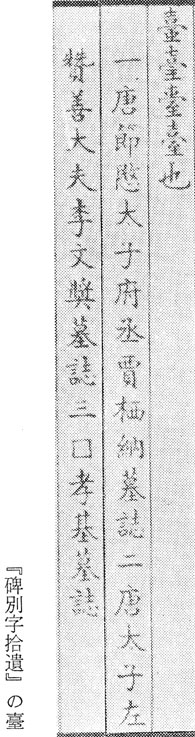 臺臺臺臺也
一唐節愍太子府丞賈栖納墓誌二唐太子左
贊善大夫李文奬墓誌三□孝基墓誌
『碑別字拾遺』の臺